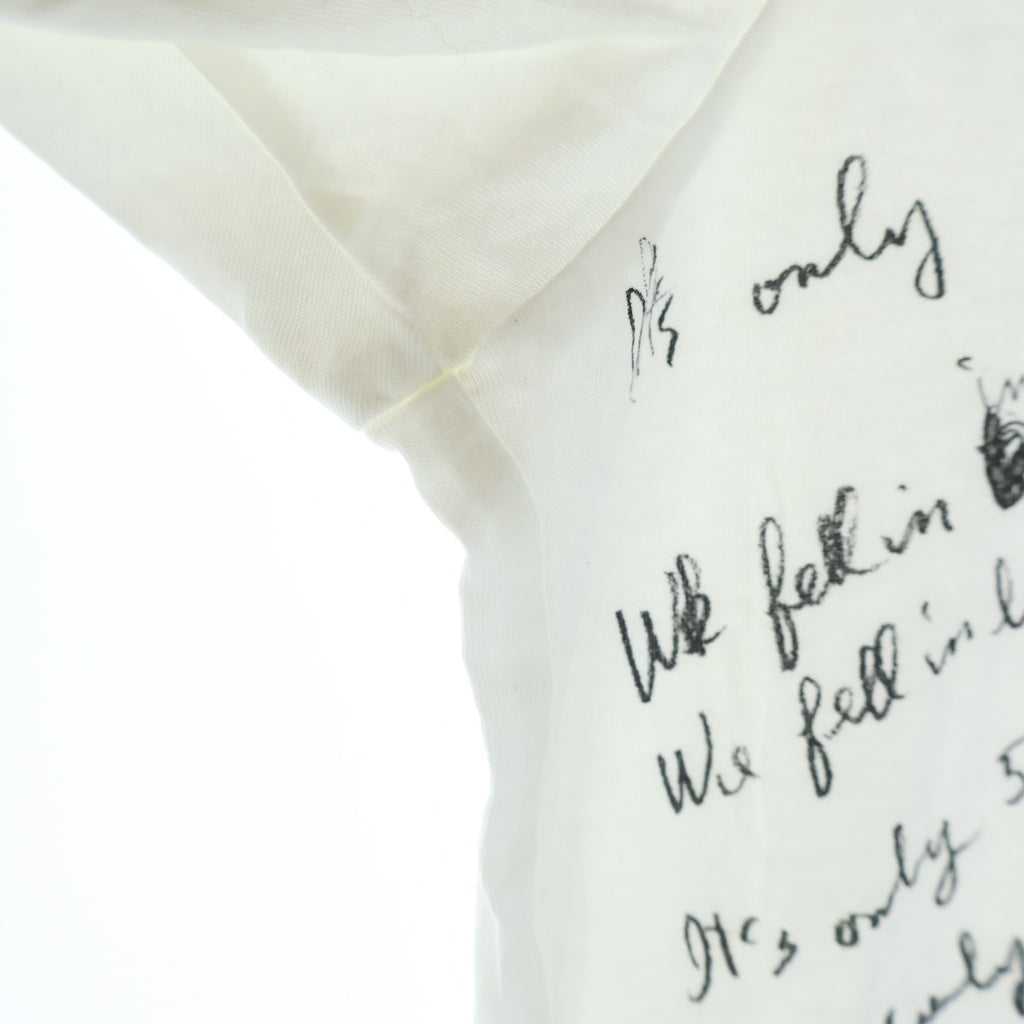 It's only
in
We fell in
We fell in
It's only 5
only